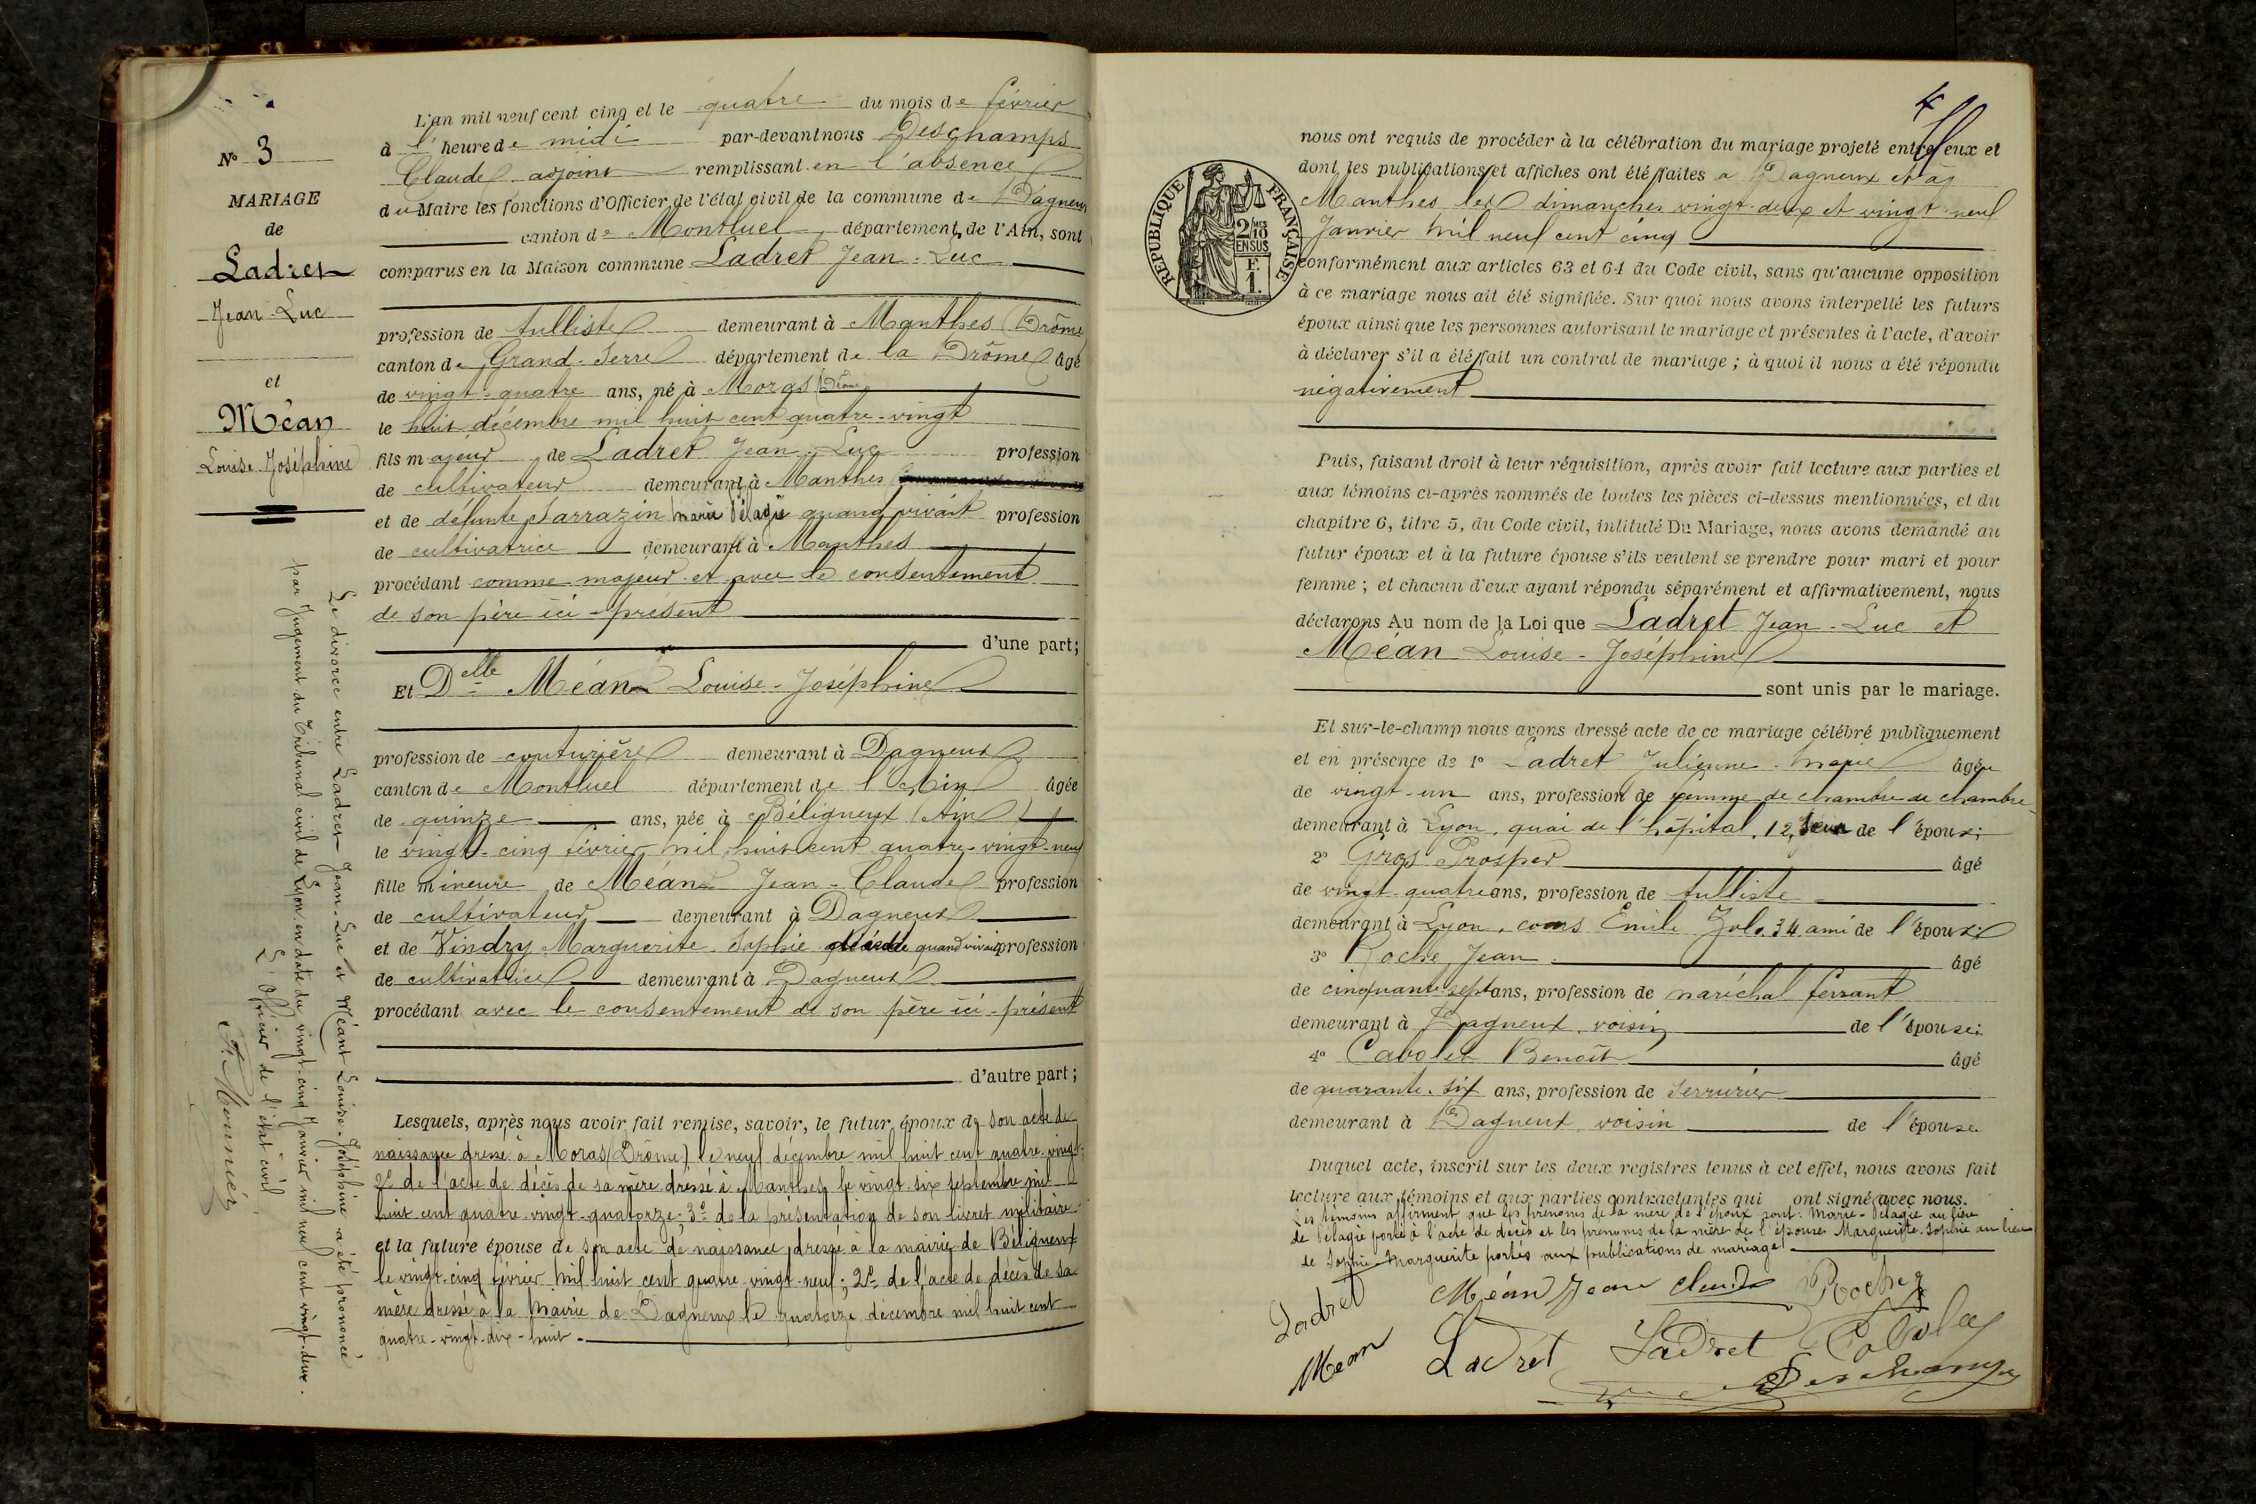 N° 3
MARIAGE
de
Ladret
Jean-Luc
et
Méan
Louise Joséphine
Le divorce entre Ladret Jean-Luc et Méant Louise-Joséphine a été prononcé
par Jugement du Tribunal civil de Lyon en date du vingt-cinq Janvier mil neuf cent vingt-deux.
L'Officier de l'état civil
L'an mil neuf cent cinq et le quatre du mois de février
à l'heure de midi par-devant nous Deschamps
Claude adjoint remplissant en l'absence
du Maire les fonctions d'Officier de l'état civil de la commune de Dagneux
canton de Montluel, département de l'Ain, sont
comparus en la Maison commune Ladret Jean-Luc
profession de tulliste demeurant à Manthes (Drôme
canton de Grand-Serre département de la Drôme âgé
de vingt-quatre ans, né à Moras (Drôme)
le huit décembre mil huit cent quatre-vingt
fils majeur de Ladret Jean-Luc profession
de cultivateur demeurant à Manthes
et de défunte Sarrazin Marie Pélagie quand vivait profession
de cultivatrice demeurant à Manthes
procédant comme majeur et avec le consentement
de son père ici-présent
d'une part;
Et Delle Méan Louise-Joséphine
profession de couturière demeurant à Dagneux
canton de Montluel département de l'Ain âgée
de quinze ans, née à Béligneux (Ain)
le vingt-cinq février mil huit cent quatre-vingt-neuf
fille mineure de Méan Jean-Claude profession
de cultivateur demeurant à Dagneux
et de Vindry Marguerite-Sophie décédée quand vivait profession
de cultivatrice demeurant à Dagneux
procédant avec le consentement de son père ici-présent
d'autre part;
Lesquels, après nous avoir fait remise, savoir, le futur époux de son acte de
naissance dressé à Moras (Drôme) le neuf décembre mil huit cent quatre-vingt;
2° de l'acte de décès de sa mère dressé à Manthes le vingt-six septembre mil
huit cent quatre-vingt-quatorze; 3° de la présentation de son livret militaire.
et la future épouse de son acte de naissance dressé à la mairie de Béligneux
le vingt-cinq février mil huit cent quatre-vingt-neuf; 2° de l'acte de décès de sa
mère dressé à la Mairie de Dagneux le quatorze décembre mil huit cent
quatre-vingt-dix-huit.
4
RÉPUBLIQUE FRANÇAISE
2/10
EN SUS
F.
1.
nous ont requis de procéder à la célébration du mariage projeté entre eux et
dont les publications et affiches ont été faites à Dagneux et à
Manthes les dimanches vingt-deux et vingt-neuf
Janvier mil neuf cent cinq
conformément aux articles 63 et 64 du Code civil, sans qu'aucune opposition
à ce mariage nous ait été signifiée. Sur quoi nous avons interpellé les futurs
époux ainsi que les personnes autorisant le mariage et présentes à l'acte, d'avoir
à déclarer s'il a été fait un contrat de mariage; à quoi il nous a été répondu
négativement
Puis, faisant droit à leur réquisition, après avoir fait lecture aux parties et
aux témoins ci-après nommés de toutes les pièces ci-dessus mentionnées, et du
chapitre 6, titre 5, du Code civil, intitulé Du Mariage, nous avons demandé au
futur époux et à la future épouse s'ils veulent se prendre pour mari et pour
femme; et chacun d'eux ayant répondu séparément et affirmativement, nous
déclarons Au nom de la Loi que Ladret Jean-Luc et
Méan Louise-Joséphine
sont unis par le mariage.
Et sur-le-champ nous avons dressé acte de ce mariage célébré publiquement
et en présence de 1° Ladret Julienne-Marie âgée
de vingt-un ans, profession de femme de chambre de chambre
demeurant à Lyon, quai de l'hôpital, 12, sœur de l'époux;
2° Gros Prosper âgé
de vingt-quatre ans, profession de tulliste
demeurant à Lyon, cours Emile Zola 34 ami de l'époux;
3° Roche Jean âgé
de cinquante-sept ans, profession de maréchal ferrant
demeurant à Dagneux, voisin de l'épouse;
4° Cabolet Benoît âgé
de quarante-six ans, profession de serrurier
demeurant à Dagneux voisin de l'épouse
Duquel acte, inscrit sur les deux registres tenus à cet effet, nous avons fait
lecture aux témoins et aux parties contractantes qui ont signé avec nous.
Les témoins affirment que les prénoms de la mère de l'époux sont: Marie-Pélagie au lieu
de Pélagie porté à l'acte de décès et les prénoms de la mère de l'épouse Marguerite-Sophie au lieu
de Sophie-Marguerite portés aux publications de mariage.
Ladret Méan Jean Claude Roche
Mean Ladret Ladret Cabolet
Deschamps